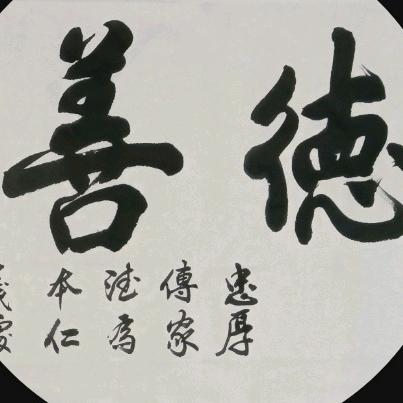 德善
忠厚
傳家
德為
本仁
義處